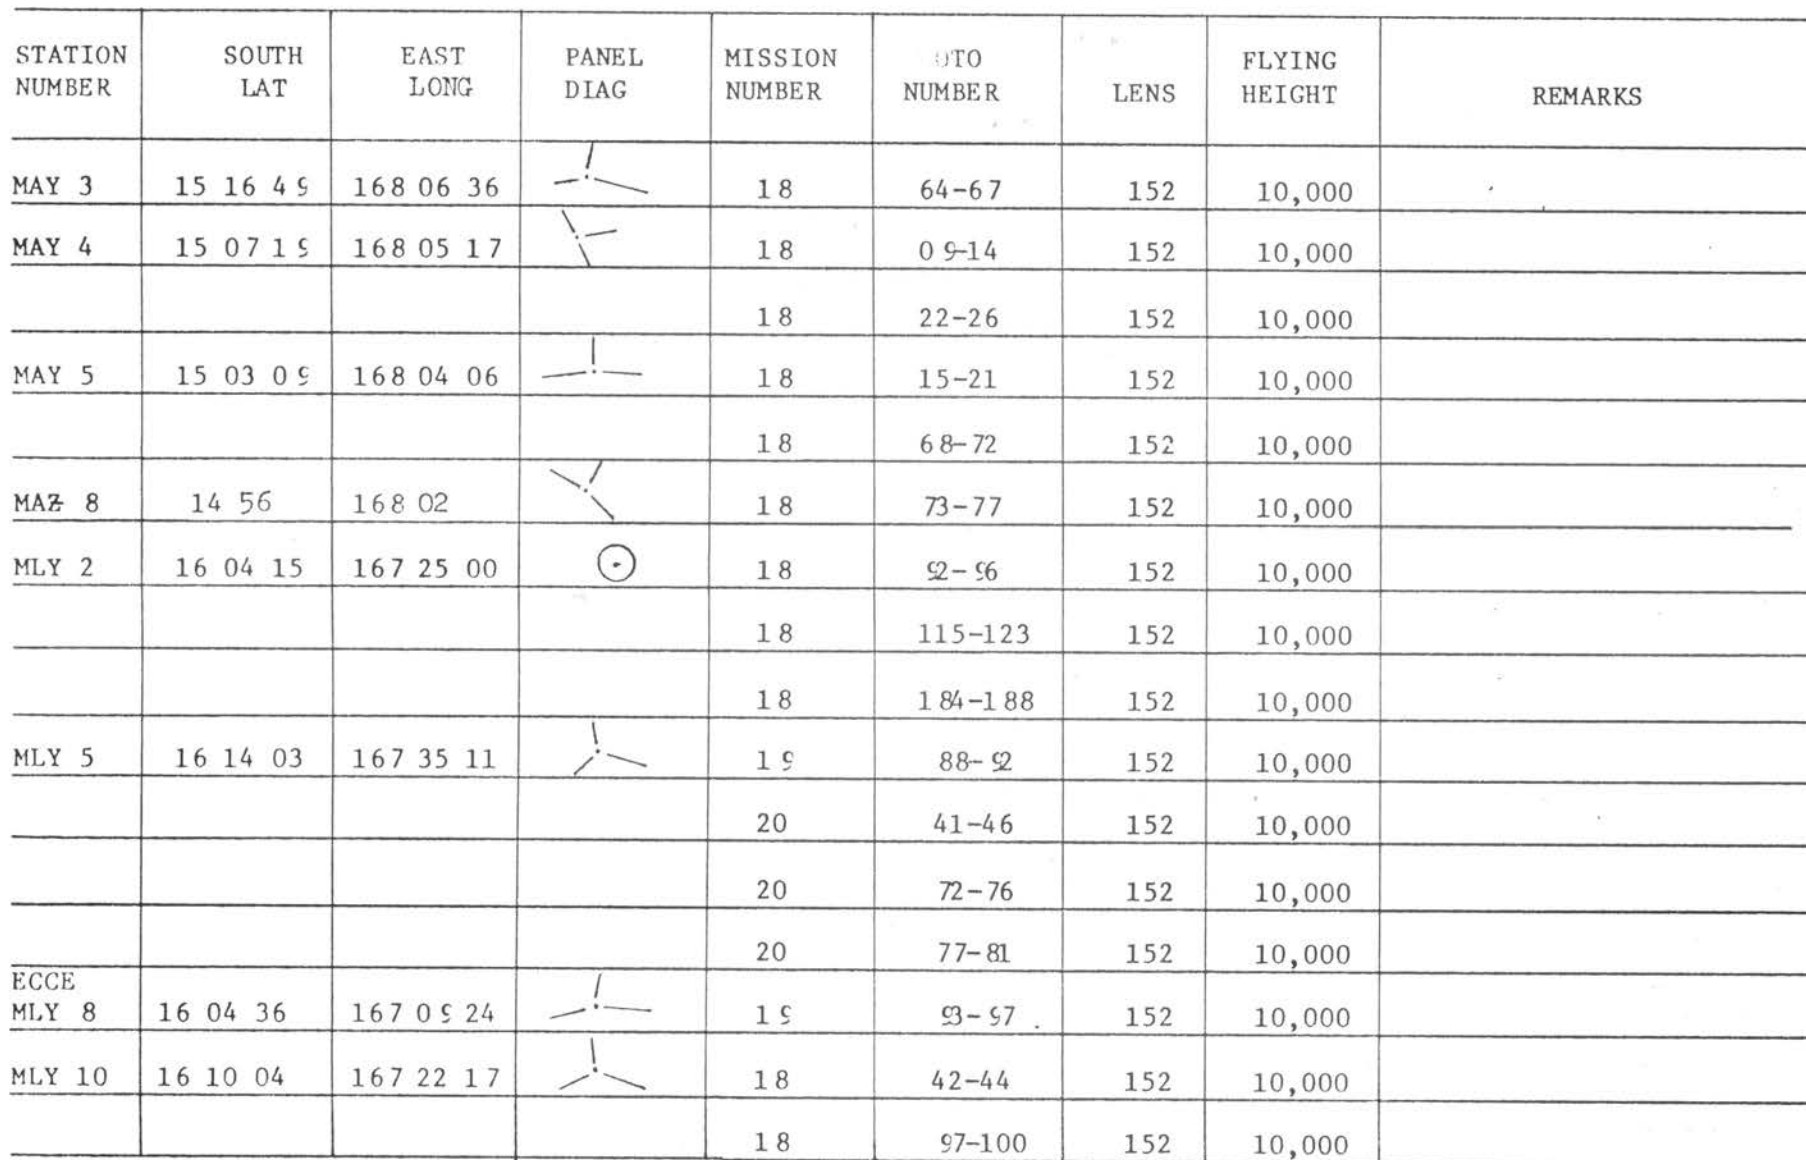 STATION NUMBER SOUTH LAT EAST LONG PANEL DIAG MISSION NUMBER OTO NUMBER LENS FLYING HEIGHT REMARKS
MAY 3 15 16 49 168 06 36 18 64-67 152 10,000
MAY 4 15 07 19 168 05 17 18 09-14 152 10,000
18 22-26 152 10,000
MAY 5 15 03 09 168 04 06 18 15-21 152 10,000
18 68-72 152 10,000
MAZ 8 14 56 168 02 18 73-77 152 10,000
MLY 2 16 04 15 167 25 00 18 92-96 152 10,000
18 115-123 152 10,000
18 184-188 152 10,000
MLY 5 16 14 03 167 35 11 19 88-92 152 10,000
20 41-46 152 10,000
20 72-76 152 10,000
20 77-81 152 10,000
ECCE
MLY 8 16 04 36 167 09 24 19 93-97 152 10,000
MLY 10 16 10 04 167 22 17 18 42-44 152 10,000
18 97-100 152 10,000